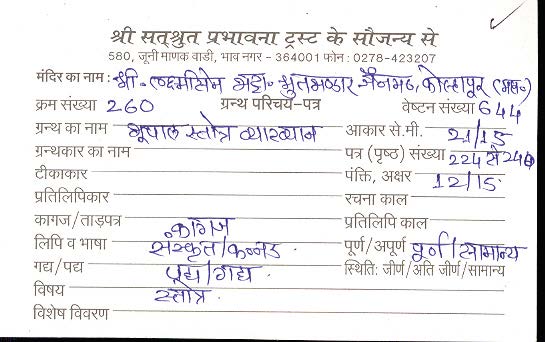 श्री सत्श्रुत प्रभावना ट्रस्ट के सौजन्य से
580, जूनी माणक वाडी, भाव नगर - 364001 फोन : 0278-423207
मंदिर का नाम : श्री लक्ष्मीसेन भट्टा॰ श्रुतभण्डार जैनमठ, कोल्हापुर (महा॰)
क्रम संख्या 260 ग्रन्थ परिचय-पत्र वेष्टन संख्या 644
ग्रन्थ का नाम भूपाल स्तोत्र व्याख्यान आकार से.मी. 21/15
ग्रन्थकार का नाम पत्र (पृष्ठ) संख्या 224 से
टीकाकार पंक्ति, अक्षर 12/15
प्रतिलिपिकार रचना काल
कागज/ताड़पत्र कागज प्रतिलिपि काल
लिपि व भाषा संस्कृत/कन्नड पूर्ण/अपूर्ण पूर्ण/सामान्य
गद्य/पद्य पद्य/गद्य स्थिति: जीर्ण/अति जीर्ण/सामान्य
विषय स्तोत्र
विशेष विवरण